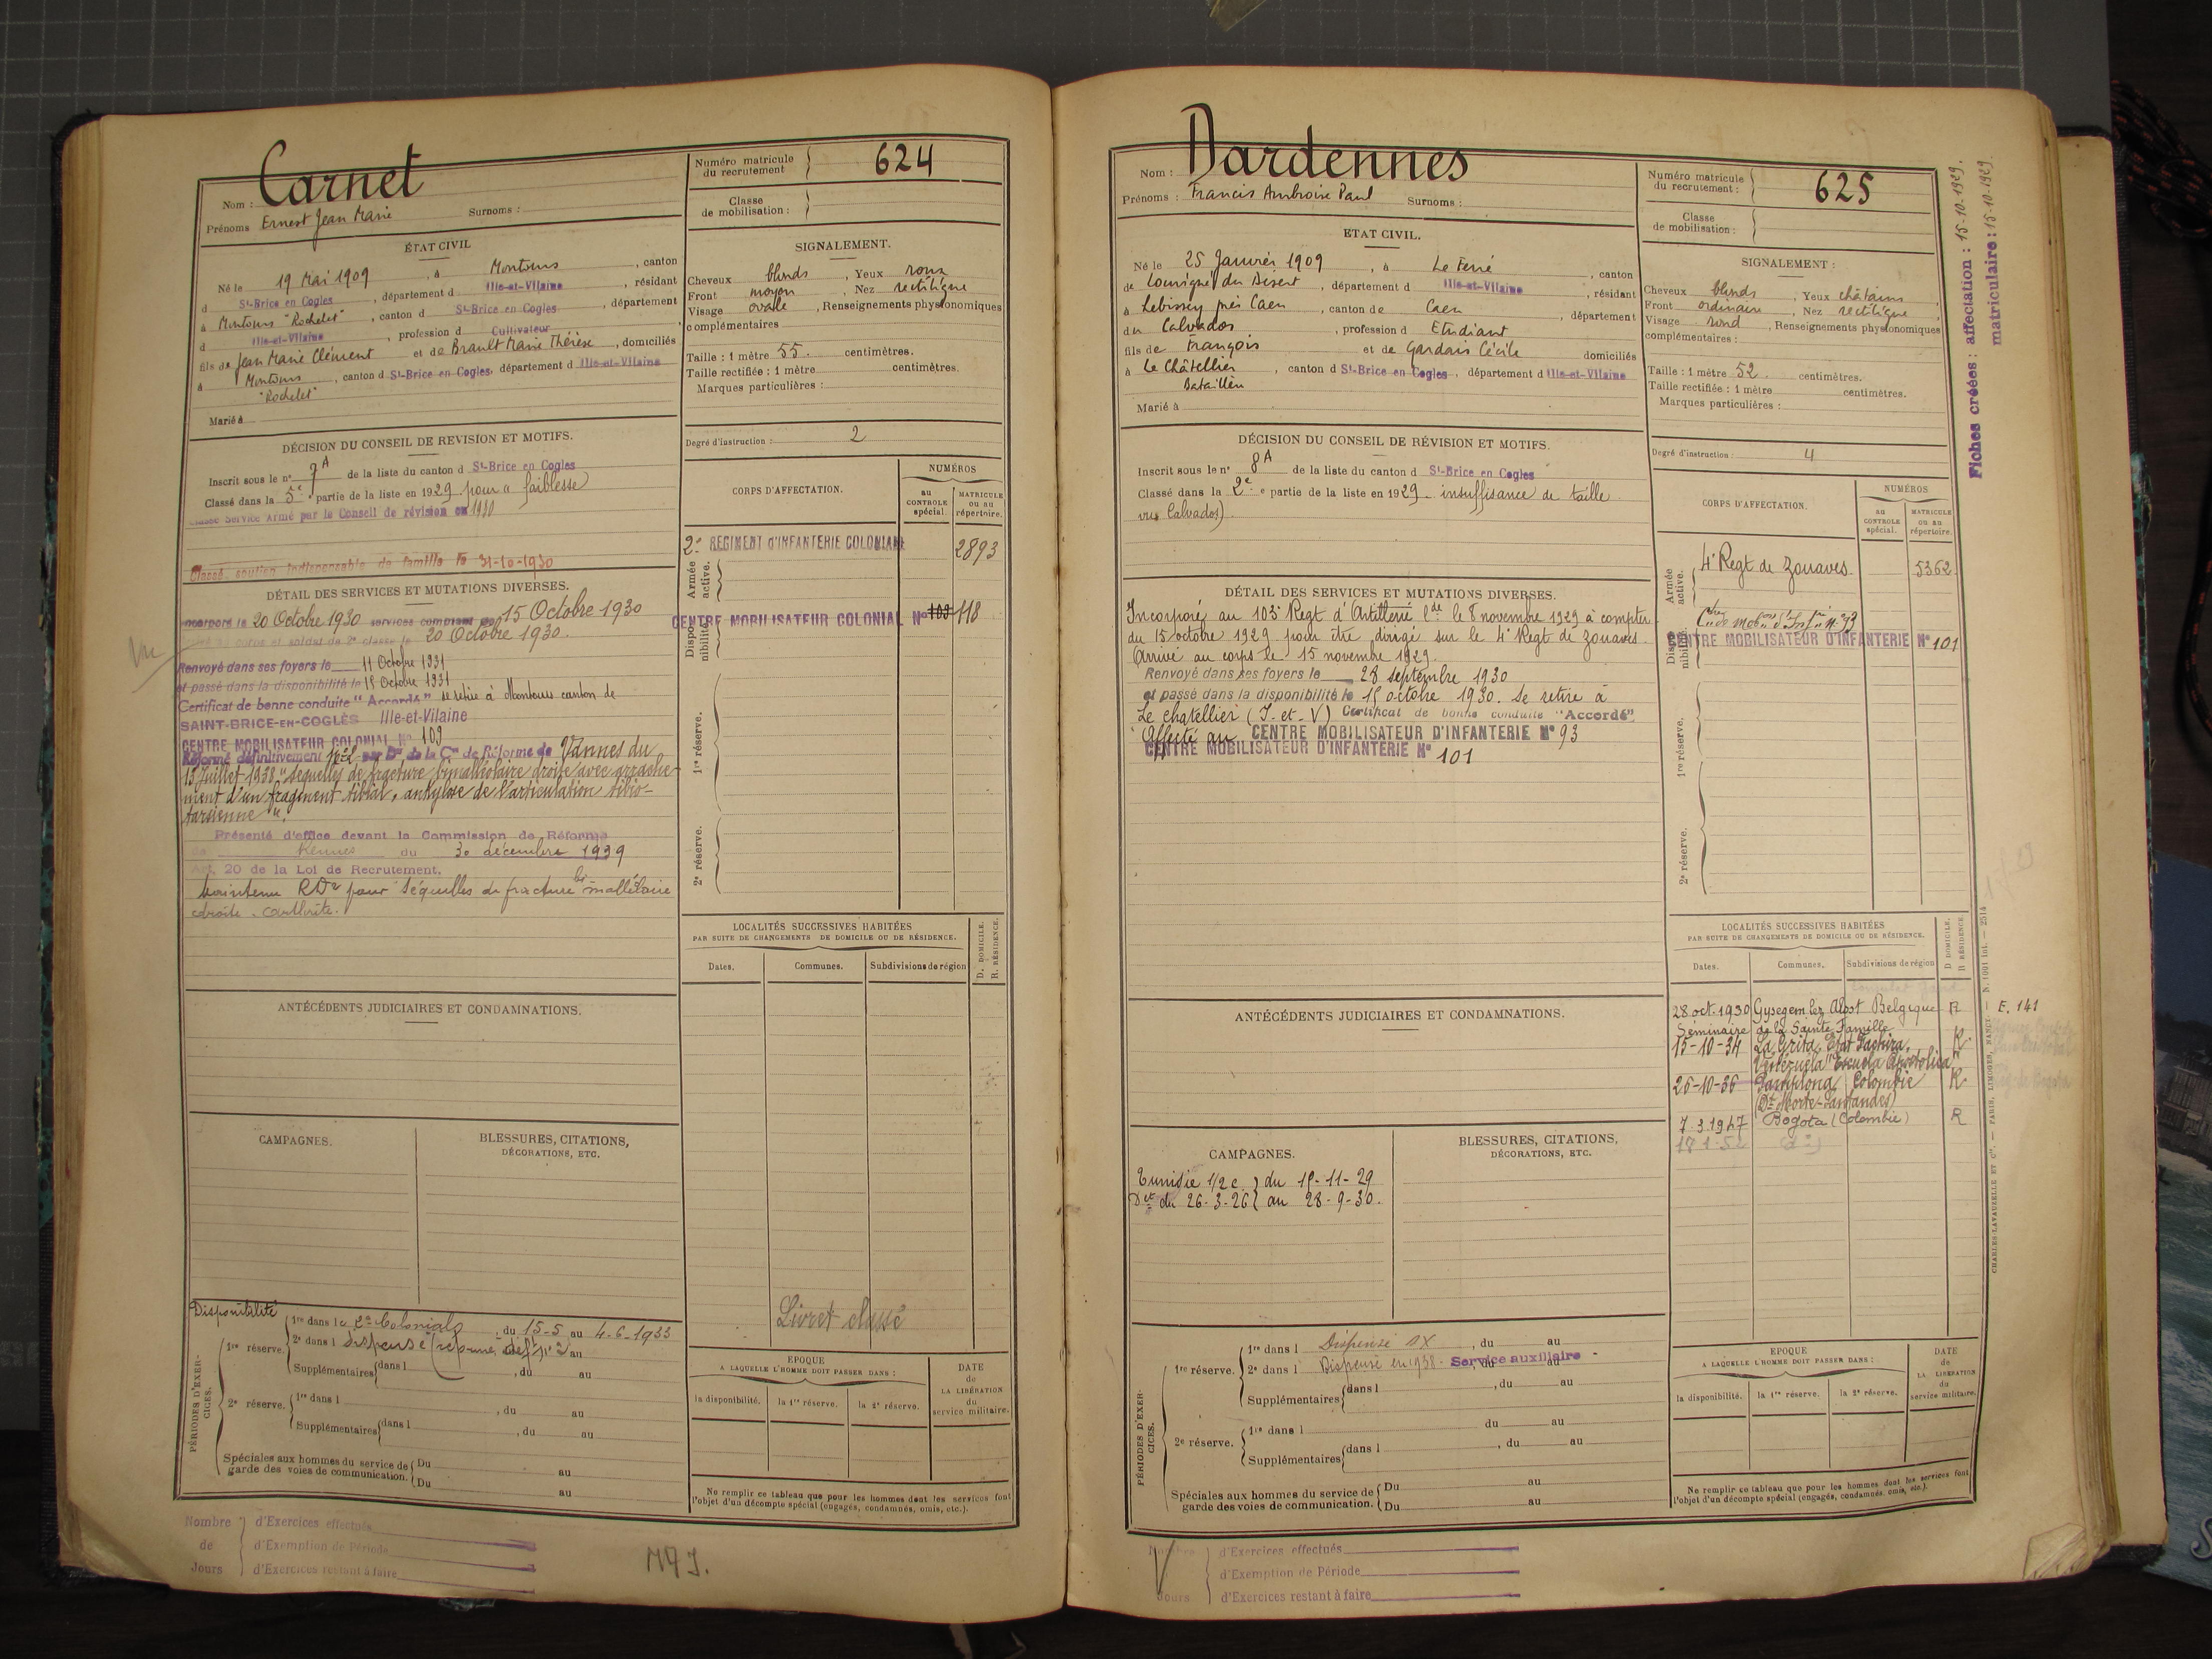 Nom : Carnet
Prénoms Ernest Jean Marie Surnoms :
Numéro matricule du recrutement 624
Classe de mobilisation :
ÉTAT CIVIL
Né le 19 Mai 1909, à Montours, canton
d St-Brice en Cogles, département d Ille-et-Vilaine, résidant
à Montours "Rochelet", canton d St-Brice en Cogles, département
d Ille-et-Vilaine, profession d Cultivateur
fils de Jean Marie Clément et de Brault Marie Thérèse, domiciliés
à Montours, canton d St-Brice en Cogles, département d Ille-et-Vilaine
"Rochelet"
Marié à
SIGNALEMENT.
Cheveux blonds, Yeux roux
Front moyen, Nez rectiligne
Visage ovale, Renseignements physionomiques
complémentaires
Taille : 1 mètre 55. centimètres.
Taille rectifiée : 1 mètre centimètres.
Marques particulières :
Degré d'instruction : 2
DÉCISION DU CONSEIL DE REVISION ET MOTIFS.
Inscrit sous le n° 7A de la liste du canton d St-Brice en Cogles
Classé dans la 5e partie de la liste en 1929 pour "faiblesse"
Classé Service Armé par le Conseil de révision en 1930
Classé soutien indispensable de famille le 31-10-1930
CORPS D'AFFECTATION.
NUMÉROS
au CONTROLE spécial.
MATRICULE ou au répertoire.
Armée active.
2e REGIMENT D'INFANTERIE COLONIALE 2893
Disponibilité
CENTRE MOBILISATEUR COLONIAL N° 109 118
1re réserve.
2e réserve.
DÉTAIL DES SERVICES ET MUTATIONS DIVERSES.
Incorporé le 20 Octobre 1930 services comptant du 15 Octobre 1930
Arrivé au corps et soldat de 2e classe le 20 Octobre 1930.
Renvoyé dans ses foyers le 11 Octobre 1931
et passé dans la disponibilité le 15 Octobre 1931
Certificat de bonne conduite "Accordé" se retire à Montours canton de
SAINT-BRICE-EN-COGLÈS Ille-et-Vilaine
CENTRE MOBILISATEUR COLONIAL N° 109
Réformé définitivement N°2 par Don de la Con de Réforme de Vannes du
13 Juillet 1938 "Séquelles de fracture bimalléolaire droite avec arrache-
ment d'un fragment tibial, ankylose de l'articulation tibio-
tarsienne".
Présenté d'office devant la Commission de Réforme
de Rennes du 30 décembre 1939
Art. 20 de la Loi de Recrutement.
Maintenu RD2 pour Séquelles de fracture bi-malléolaire
droite. arthrite.
LOCALITÉS SUCCESSIVES HABITÉES
PAR SUITE DE CHANGEMENTS DE DOMICILE OU DE RÉSIDENCE.
Dates. Communes. Subdivisions de région D. DOMICILE. R. RÉSIDENCE.
Livret classé
ANTÉCÉDENTS JUDICIAIRES ET CONDAMNATIONS.
CAMPAGNES.
BLESSURES, CITATIONS, DÉCORATIONS, ETC.
PÉRIODES D'EXERCICES.
Disponibilité
1re réserve. 1re dans le 2e Colonial, du 15-5 au 4-6-1933
2e dans l dispensé (réformé déf n°2 au
Supplémentaires dans l, du au
2e réserve. 1re dans l, du au
Supplémentaires dans l, du au
Spéciales aux hommes du service de garde des voies de communication. Du au
Du au
EPOQUE
A LAQUELLE L'HOMME DOIT PASSER DANS :
la disponibilité. la 1re réserve. la 2e réserve.
DATE de LA LIBÉRATION du service militaire.
Ne remplir ce tableau que pour les hommes dont les services font
l'objet d'un décompte spécial (engagés, condamnés, omis, etc.).
Nombre de Jours
d'Exercices effectués
d'Exemption de Période
d'Exercices restant à faire
Nom : Dardennes
Prénoms : Francis Ambroise Paul Surnoms :
Numéro matricule du recrutement : 625
Classe de mobilisation :
Fiches créées : affectation : 15-10-1929.
matriculaire : 15-10-1929.
ETAT CIVIL.
Né le 25 Janvier 1909, à Le Ferré, canton
de Louvigné du Désert, département d Ille-et-Vilaine, résidant
à Lebissey près Caen, canton de Caen, département
du Calvados, profession d Etudiant
fils de François et de Gardais Cécile domiciliés
à Le Châtellier, canton d St-Brice en Cogles, département d Ille-et-Vilaine
Bataillèu
Marié à
SIGNALEMENT :
Cheveux blonds, Yeux châtains,
Front ordinaire, Nez rectiligne,
Visage rond, Renseignements physionomiques
complémentaires :
Taille : 1 mètre 52. centimètres.
Taille rectifiée : 1 mètre centimètres.
Marques particulières :
Degré d'instruction : 4
DÉCISION DU CONSEIL DE RÉVISION ET MOTIFS.
Inscrit sous le n° 8A de la liste du canton d St-Brice en Cogles
Classé dans la 2e partie de la liste en 1929 insuffisance de taille
vu Calvados)
CORPS D'AFFECTATION.
NUMÉROS
au CONTROLE spécial.
MATRICULE ou au répertoire.
Armée active.
4e Regt de Zouaves. 5362
Disponibilité
Cre de mobon d'Infie N° 93
CENTRE MOBILISATEUR D'INFANTERIE N° 101
1re réserve.
2e réserve.
DÉTAIL DES SERVICES ET MUTATIONS DIVERSES.
Incorporé au 103e Regt d'Artillerie lde le 8 novembre 1929 à compter
du 15 octobre 1929 pour être dirigé sur le 4e Regt de Zouaves.
Arrivé au corps le 15 novembre 1929.
Renvoyé dans ses foyers le 28 septembre 1930
et passé dans la disponibilité le 15 octobre 1930. Se retire à
Le chatellier (I-et-V) Certificat de bonne conduite "Accordé"
Affecté au CENTRE MOBILISATEUR D'INFANTERIE N° 93
CENTRE MOBILISATEUR D'INFANTERIE N° 101
LOCALITÉS SUCCESSIVES HABITÉES
PAR SUITE DE CHANGEMENTS DE DOMICILE OU DE RÉSIDENCE.
Dates. Communes. Subdivisions de région D DOMICILE R RÉSIDENCE
28 oct. 1930 Gysegem lez Alost Belgique R E. 141
Séminaire de la Sainte Famille
15-10-34 La Grita, Etat Tachira, R.
Vénézuéla "Escuela Apostolica"
26-10-36 Pamplona Colombie R.
(Dt Norte-Santandes)
7.3.1947 Bogota (Colombie) R
17.1.52 (do)
ANTÉCÉDENTS JUDICIAIRES ET CONDAMNATIONS.
CAMPAGNES.
Tunisie 1/2 c. ) du 15-11-29
Det du 26-3-26 ( au 28-9-30.
BLESSURES, CITATIONS, DÉCORATIONS, ETC.
PÉRIODES D'EXERCICES.
1re réserve. 1re dans l Dispensé DX, du au
2e dans l Dispensé en 1938 - Service auxiliaire -, du au
Supplémentaires dans l, du au
2e réserve. 1re dans l du au
Supplémentaires dans l, du au
Spéciales aux hommes du service de garde des voies de communication. Du au
Du au
EPOQUE
A LAQUELLE L'HOMME DOIT PASSER DANS :
la disponibilité. la 1re réserve. la 2e réserve.
DATE de LA LIBÉRATION du service militaire.
Ne remplir ce tableau que pour les hommes dont les services font
l'objet d'un décompte spécial (engagés, condamnés, omis, etc.).
CHARLES-LAVAUZELLE ET Cie. — PARIS, LIMOGES, NANCY. — N. 1001 int. — 2514
Nombre Jours
d'Exercices effectués
d'Exemption de Période
d'Exercices restant à faire